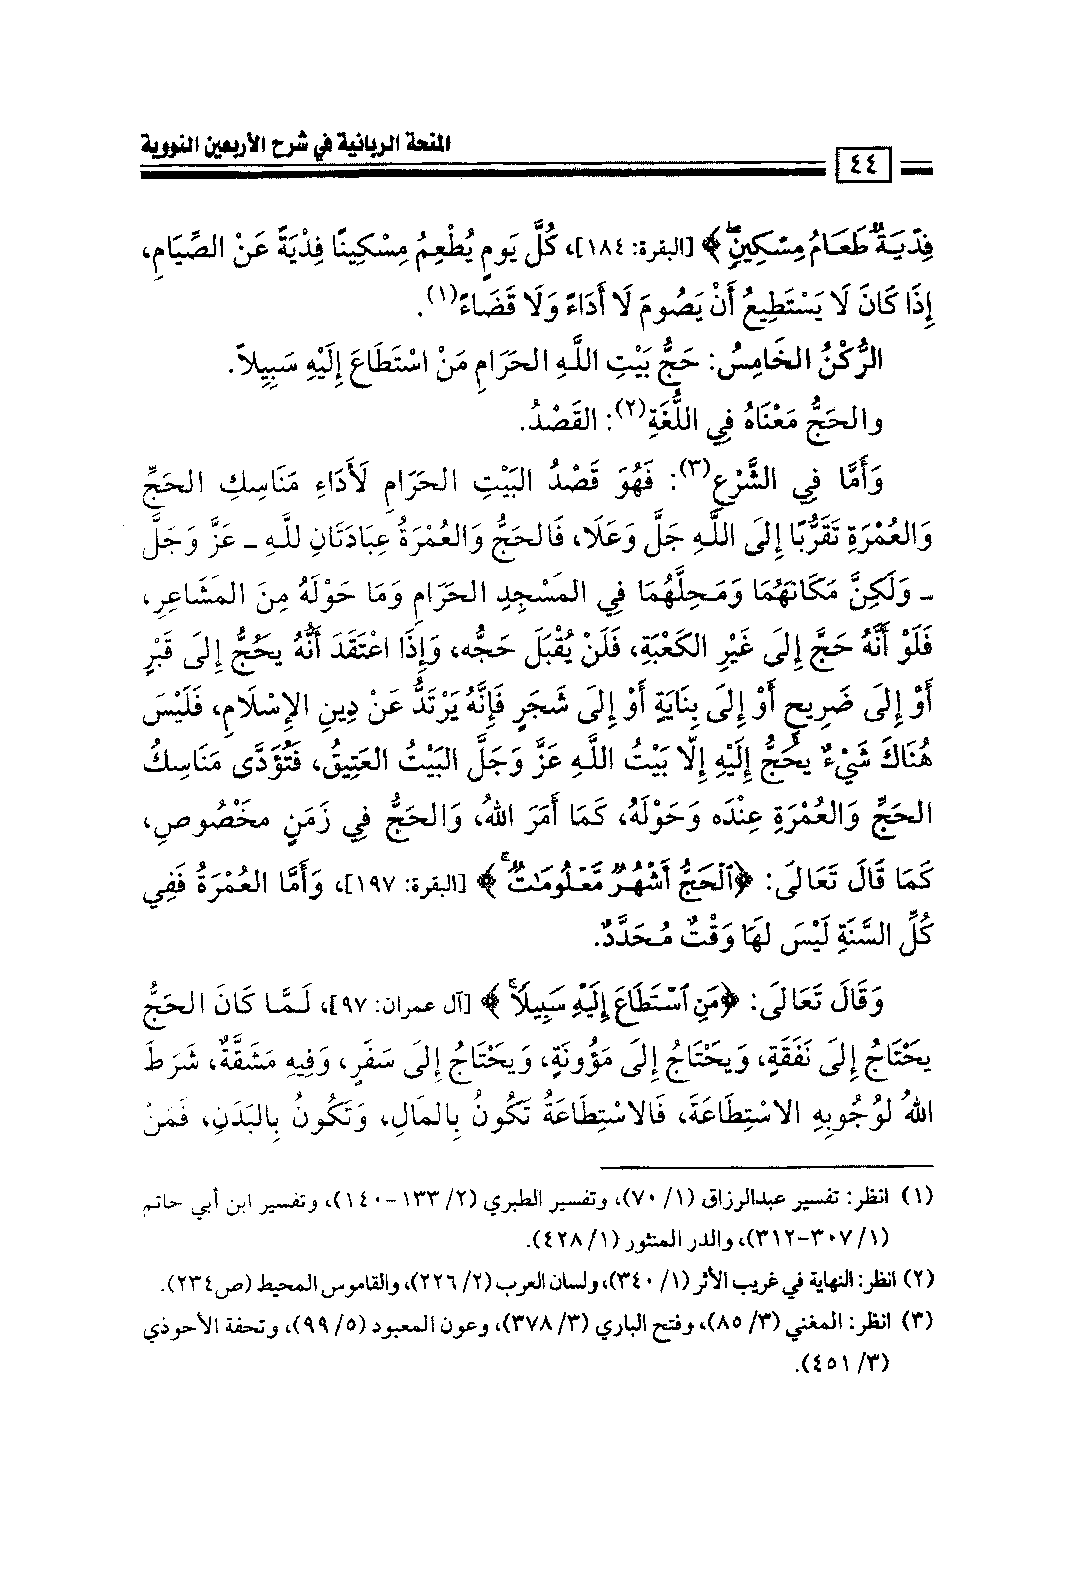 المنحة الربانية في شرح الأربعين النووية
٤٤
فِدْيَةٌ طَعَامُ مِسْكِينٍ﴾ [البقرة: ١٨٤]، كُلَّ يَومٍ يُطْعِمُ مِسْكِينًا فِدْيَةً عَنْ الصِّيَامِ،
إِذَا كَانَ لَا يَسْتَطِيعُ أَنْ يَصُومَ لَا أَدَاءً وَلَا قَضَاءً(١).
الرُّكْنُ الخَامِسُ: حَجُّ بَيْتِ اللَّهِ الحَرَامِ مَنْ اسْتَطَاعَ إِلَيْهِ سَبِيلاً.
والحَجُّ مَعْنَاهُ فِي اللُّغَةِ(٢): القَصْدُ.
وَأَمَّا فِي الشَّرْعِ(٣): فَهُوَ قَصْدُ البَيْتِ الحَرَامِ لَأَدَاءِ مَنَاسِكِ الحَجِّ
وَالعُمْرَةِ تَقَرُّبًا إِلَى اللَّهِ جَلَّ وَعَلَا، فَالحَجُّ وَالعُمْرَةُ عِبَادَتَانِ للَّهِ ـ عَزَّ وَجَلَّ
ـ وَلَكِنَّ مَكَانَهُمَا وَمَحِلَّهُمَا فِي المَسْجِدِ الحَرَامِ وَمَا حَوْلَهُ مِنَ المَشَاعِرِ،
فَلَوْ أَنَّهُ حَجَّ إِلَى غَيْرِ الكَعْبَةِ، فَلَنْ يُقْبَلَ حَجُّه، وَإِذَا اعْتَقَدَ أَنَّهُ يَحُجُّ إِلَى قَبْرٍ
أَوْ إِلَى ضَرِيحٍ أَوْ إِلَى بِنَايَةٍ أَوْ إِلَى شَجَرٍ فَإِنَّهُ يَرْتَدُّ عَنْ دِينِ الإِسْلَامِ، فَلَيْسَ
هُنَاكَ شَيْءٌ يُحَجُّ إِلَيْهِ إِلَّا بَيْتُ اللَّهِ عَزَّ وَجَلَّ البَيْتُ العَتِيقُ، فَتُؤَدَّى مَنَاسِكُ
الحَجِّ وَالعُمْرَةِ عِنْدَه وَحَوْلَهُ، كَمَا أَمَرَ اللهُ، وَالحَجُّ فِي زَمَنٍ مخْصُوصٍ،
كَمَا قَالَ تَعَالَى: ﴿ٱلْحَجُّ أَشْهُرٌ مَّعْلُومَٰتٌ﴾ [البقرة: ١٩٧]، وَأَمَّا العُمْرَةُ فَفِي
كُلِّ السَّنَةِ لَيْسَ لهَا وَقْتٌ مُحَدَّدٌ.
وَقَالَ تَعَالَى: ﴿مَنِ ٱسْتَطَاعَ إِلَيْهِ سَبِيلًا﴾ [آل عمران: ٩٧]، لَمَّا كَانَ الحَجُّ
يَحْتَاجُ إِلَى نَفَقَةٍ، وَيَحْتَاجُ إِلَى مَؤُونَةٍ، وَيحْتَاجُ إِلَى سَفَرٍ، وَفِيهِ مَشَقَّةٌ، شَرَطَ
اللهُ لوُجُوبِهِ الاسْتِطَاعَةَ، فَالاسْتِطَاعَةُ تَكُونُ بِالمَالِ، وَتَكُونُ بِالبَدَنِ، فَمَنْ
(١) انظر: تفسير عبدالرزاق (١/ ٧٠)، وتفسير الطبري (٢/ ١٣٣-١٤٠)، وتفسير ابن أبي حاتم
(١/ ٣٠٧-٣١٢)، والدر المنثور (١/ ٤٢٨).
(٢) انظر: النهاية في غريب الأثر (١/ ٣٤٠)، ولسان العرب (٢/ ٢٢٦)، والقاموس المحيط (ص٢٣٤).
(٣) انظر: المغني (٣/ ٨٥)، وفتح الباري (٣/ ٣٧٨)، وعون المعبود (٥/ ٩٩)، وتحفة الأحوذي
(٣/ ٤٥١).